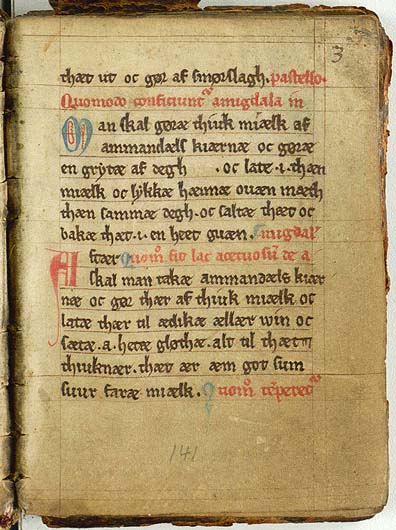 3
thæt ut oc gør af smørslagh. pastello.
Quomodo conficiunt᷑ amigdala in
Man skal gøræ thiuk miælk af
ammandæls kiærnæ oc gøræ
en grytæ af degh . oc late .i. thæn
miælk oc lykkæ hænnæ ouæn mæth
thæn sammæ degh. oc saltæ thæt oc
bakæ thæt .i. en heet ouæn. migdal᷑
Affter Quom̅ fit lac acetosu̅ de a
skal man takæ ammandæls kiær
næ oc gør thær af thiuk miælk oc
latæ thær til ædikæ ællær win oc
sætæ .a. hetæ gløthæ. alt til thæt
thiuknær. thæt ær æm got sum
suur faræ miælk. Quom̅ te̅peret᷑
141